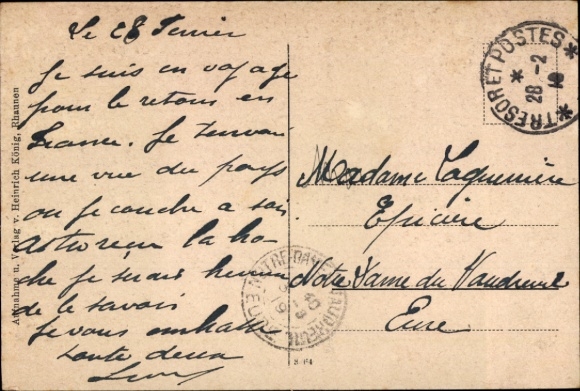 Le 28 Fevrier
Je suis en voyage
pour le retour en
France. Je t'envoie
une vue du pays
ou je couche a soir
la
je serais heureux
de le savoir
Je vous embrasse
toute deux
Aufnahme u. Verlag v. Heinrich König, Rhaunen
TRESOR ET POSTES
28 -2
Madame
Epicière
Notre Dame du Vaudreuil
Eure
NOTRE-DAME
EURE